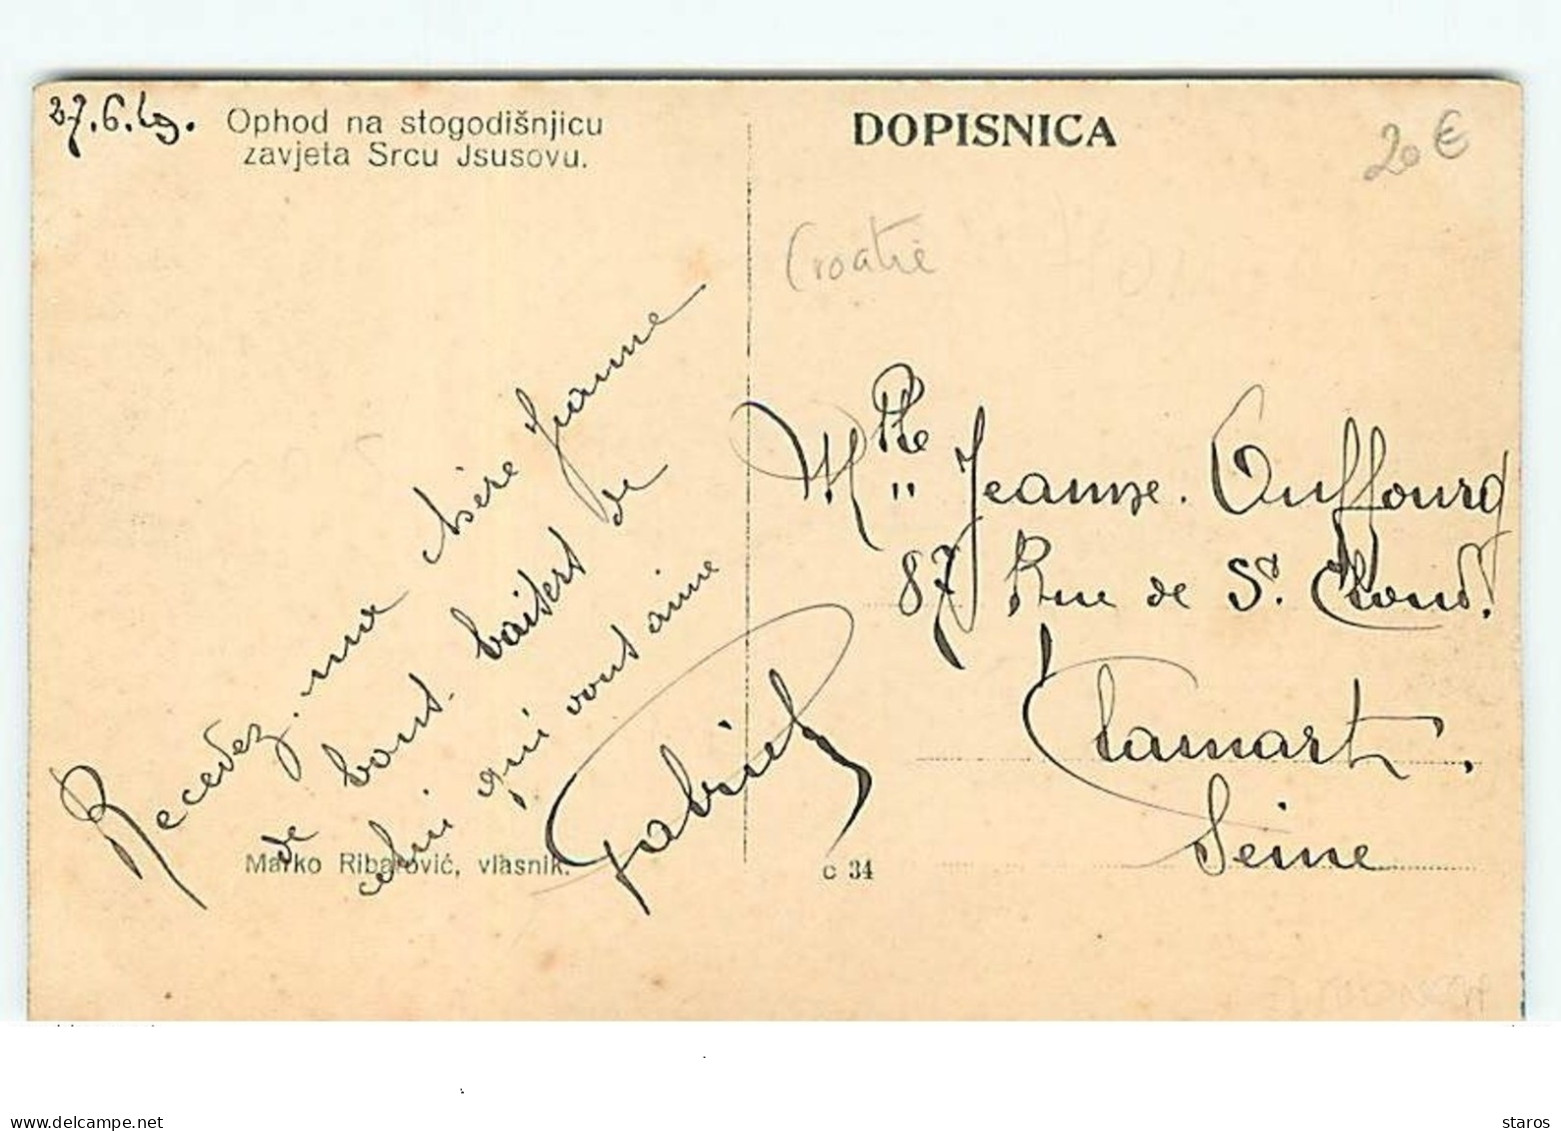 27.6.19.
Ophod na stogodišnjicu
zavjeta Srcu Jsusovu.
DOPISNICA
20 €
Croatie
Recevez ma chère Jeanne
de bons baisers de
celui qui vous aime
Gabriel
Mlle Jeanne Ouffourg
87 Rue de St. Cloud.
Clamart.
Seine
Marko Ribarović, vlasnik.
c 34
www.delcampe.net
staros